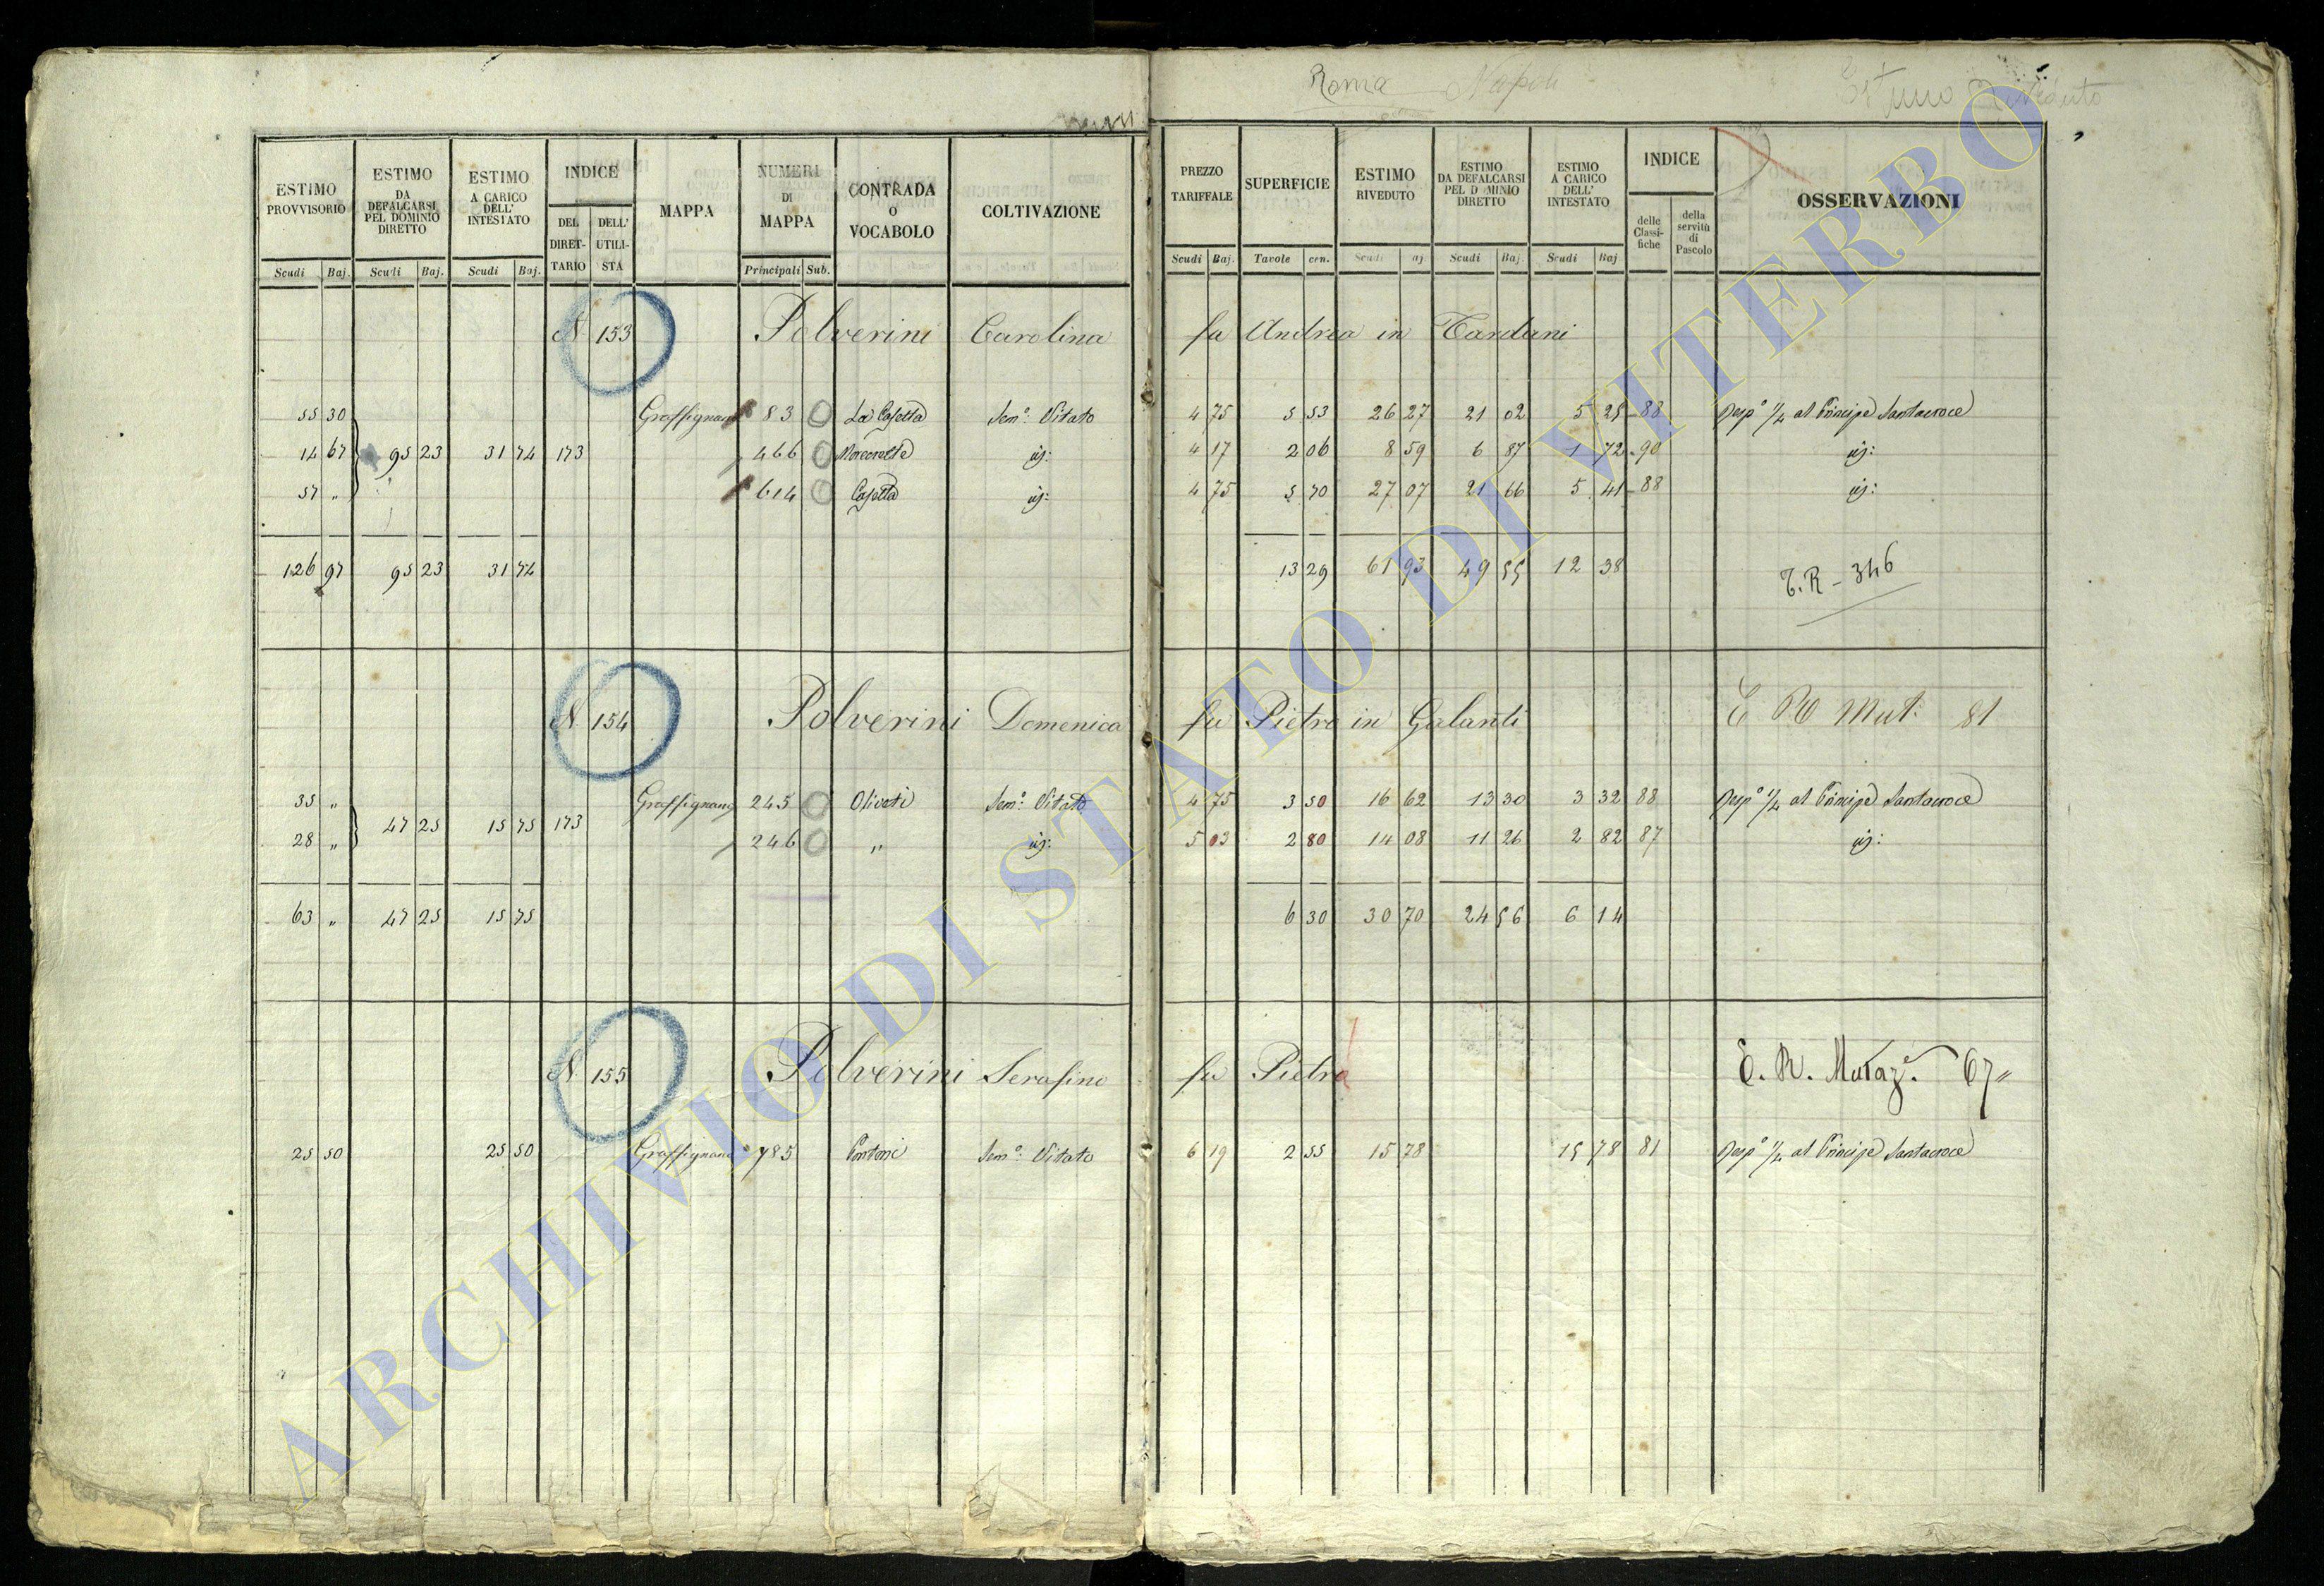 Roma Napoli
ESTIMO PROVVISORIO Scudi Baj.
ESTIMO DA DEFALCARSI PEL DOMINIO DIRETTO Scudi Baj.
ESTIMO A CARICO DELL' INTESTATO Scudi Baj.
INDICE DEL DIRETTARIO DELL' UTILISTA
MAPPA
NUMERI DI MAPPA Principali Sub.
CONTRADA O VOCABOLO
COLTIVAZIONE
PREZZO TARIFFALE Scudi Baj.
SUPERFICIE Tavole cen.
ESTIMO RIVEDUTO Scudi aj
ESTIMO DA DEFALCARSI PEL D MINIO DIRETTO Scudi Baj.
ESTIMO A CARICO DELL' INTESTATO Scudi Baj
INDICE delle Classifiche della servitù di Pascolo
OSSERVAZIONI
N. 153 Polverini Carolina fu Andrea in Tardani
55 30 Graffignano 83 La Casetta Sem.º Vitato 4 75 5 53 26 27 21 02 5 25 88 Resp.º 1/4 al Principe Santacroce
14 67 95 23 31 74 173 466 id: 4 17 2 06 8 59 6 87 1 72 90 id:
57 " 614 Casetta id: 4 75 5 70 27 07 21 66 5 41 88 id:
126 97 95 23 31 74 13 29 61 93 49 55 12 38 T.R - 346
N. 154 Polverini Domenica fu Pietro in Galanti E R Mut. 81
35 " Graffignano 245 Oliveti Sem.º Vitato 4 75 3 50 16 62 13 30 3 32 88 Resp.º 1/4 al Principe Santacroce
47 25 15 75 173
28 " 246 " id: 5 03 2 80 14 08 11 26 2 82 87 id:
63 " 47 25 15 75 6 30 30 70 24 56 6 14
N. 155 Polverini Serafino fu Pietro E. R. Mutaz.e 67"
25 50 25 50 Graffignano 785 Pontoni Sem.º Vitato 6 19 2 55 15 78 15 78 81 Resp.º 1/4 al Principe Santacroce
ARCHIVIO DI STATO DI VITERBO